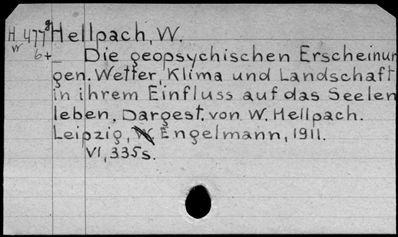 H 477g Hellpach, W.
w 6+ Die geopsychischen Erscheinun
gen. Wetter, Klima und Landschaft
in ihrem Einfluss auf das Seelen
leben, Dargest. von W. Hellpach.
Leipzig, W. Engelmann, 1911.
VI, 335s.